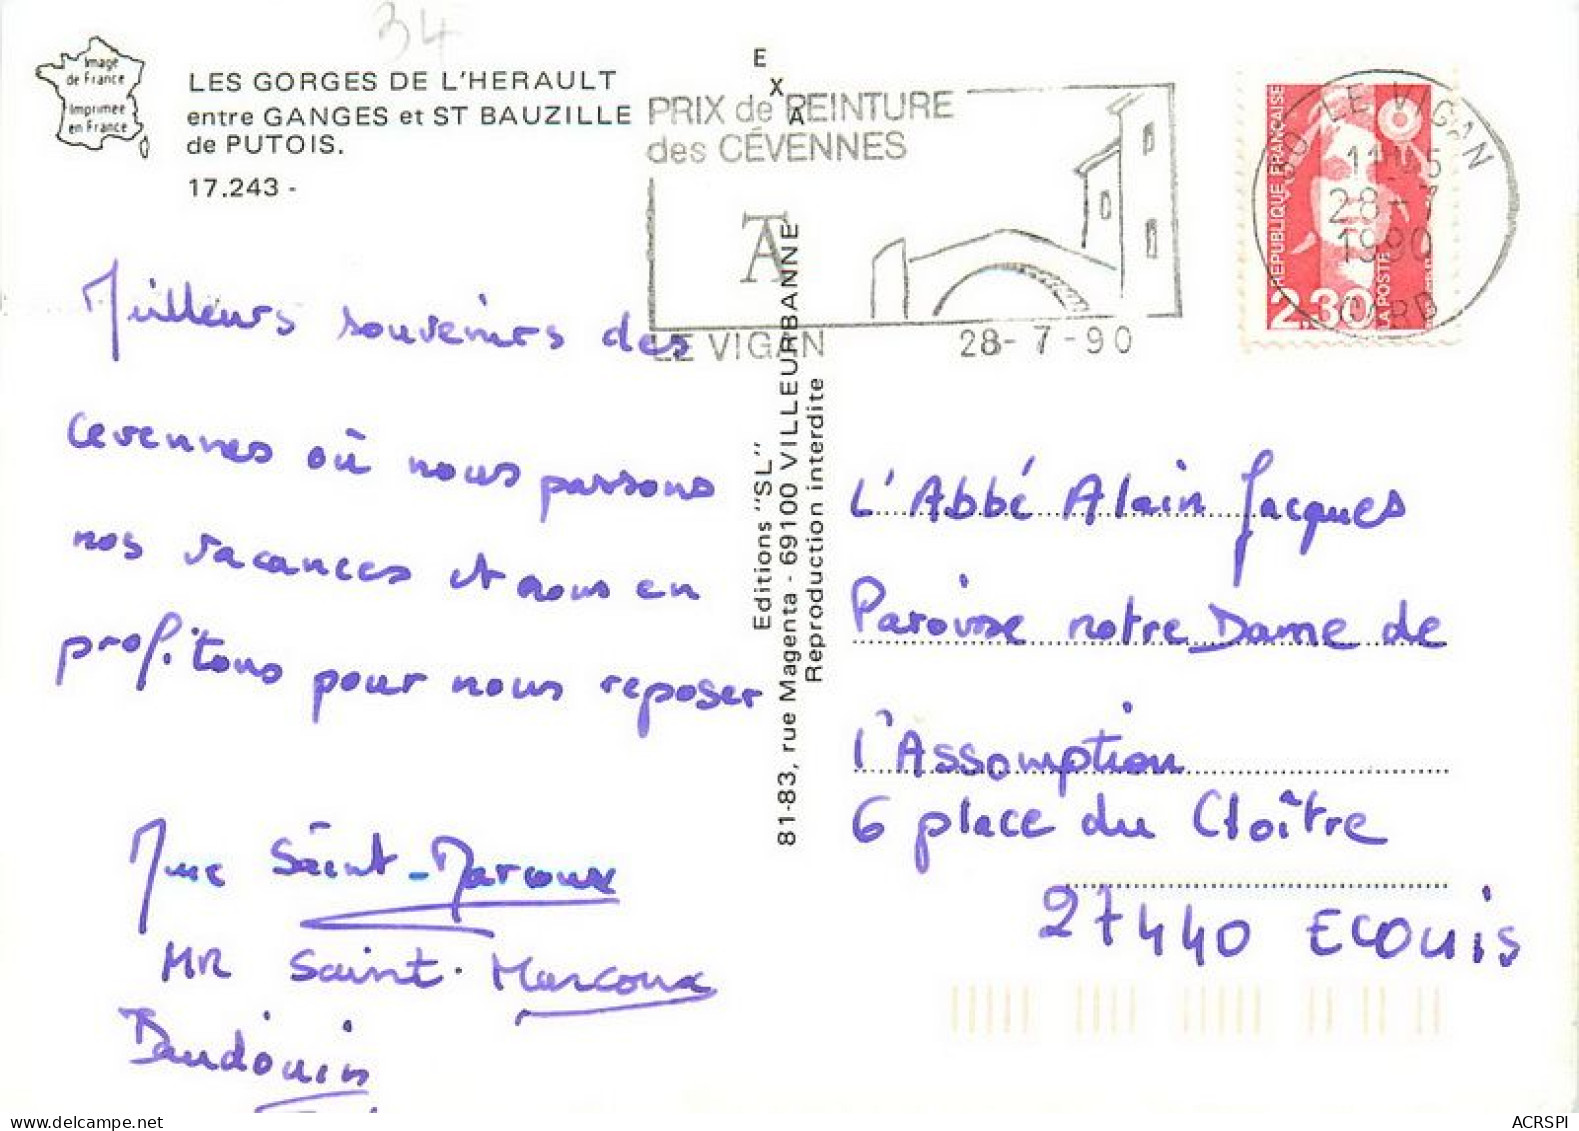 34
Image
de France
Imprimée
en France
LES GORGES DE L'HERAULT
entre GANGES et ST BAUZILLE
de PUTOIS.
17.243 -
EXA
PRIX de PEINTURE
des CÉVENNES
LE VIGAN
28-7-90
LE VIGAN
28-7
1990
GARD
REPUBLIQUE FRANÇAISE
2,30
LA POSTE
Meilleurs souvenirs des
Cevennes où nous passons
nos vacances et nous en
profitons pour nous reposer
Mme Saint-Marcoux
MR Saint-Marcoux
Baudouin
Editions "SL"
81-83, rue Magenta - 69100 VILLEURBANNE
Reproduction interdite
L'Abbé Alain Jacques
Paroisse notre Dame de
l'Assomption
6 place du Cloître
27440 Ecouis
ACRSPI